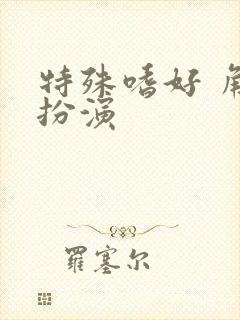 特殊嗜好 角
扮演
羅塞尔